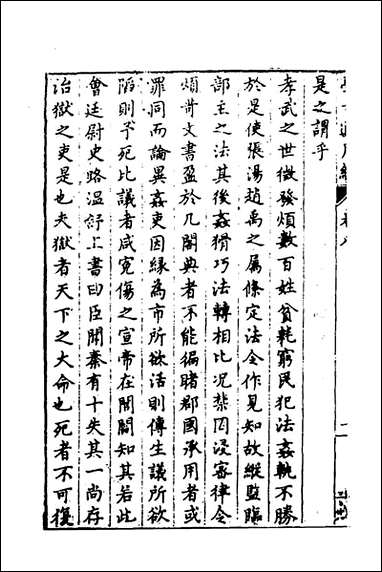 是之謂乎
孝武之世徵發煩數百姓貧耗窮民犯法姦軌不勝
於是使張湯趙禹之屬條定法令作見知故縱監臨
部主之法其後姦猾巧法轉相比况禁罔浸密律令
煩苛文書盈於几閣典者不能徧睹郡國承用者或
罪同而論異姦吏因緣為市所欲活則傳生議所欲
陷則予死比議者咸寃傷之宣帝在閭閻知其若此
會廷尉史路溫舒上書曰臣聞秦有十失其一尚存
治獄之吏是也夫獄者天下之大命也死者不可復